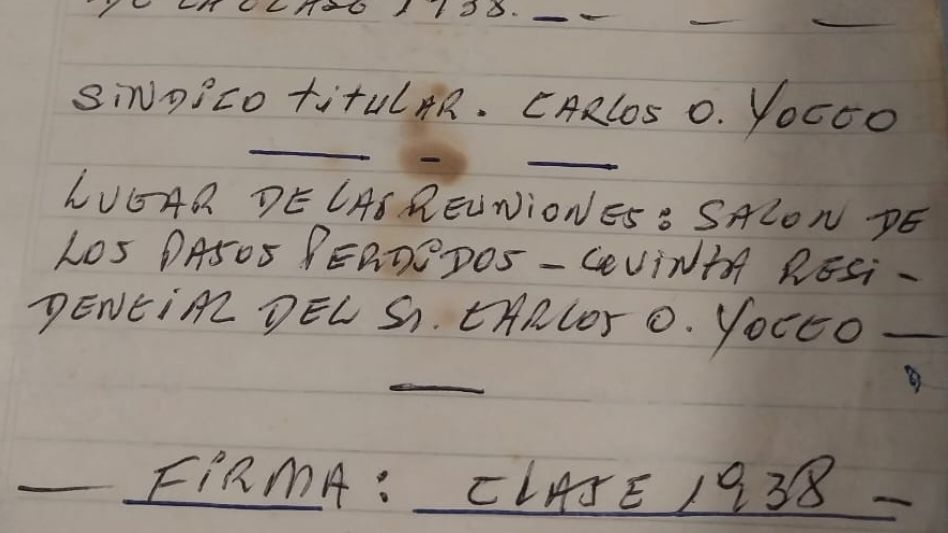 DE LA CLASE 1938. — – — —
SINDICO titULAR. CARLOS O. YOCCO
LUGAR DE LAS REUNIONES: SALON DE
LOS PASOS PERDIDOS - QUINTA RESI-
DENCIAL DEL Sr. CARLOS O. YOCCO —
— FIRMA: CLASE 1938 –